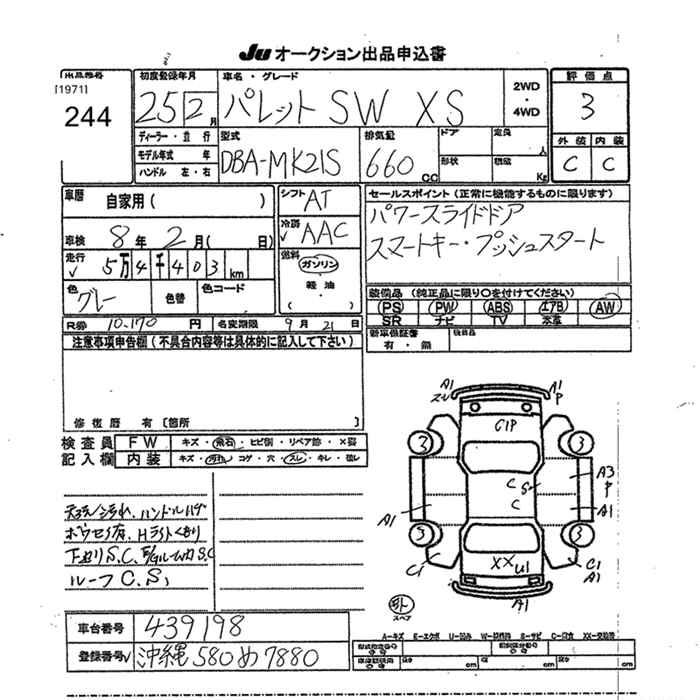 JU オークション出品申込書
出品番号
[1971]
244
初度登録年月
25 12 月
車名・グレード
パレット SW XS
2WD
・
4WD
評価点
3
外装 内装
C C
ディーラー・並行
モデル年式 年
ハンドル 左・右
型式
DBA-MK21S
排気量
660 CC
ドア
定員 人
形状
積載 Kg
車歴 自家用( )
シフト AT
冷房 AAC
燃料 ガソリン
・
軽油
( )
車検 8 年 2 月( 日)
走行 5万4千403 km
色 グレー
色替
色コード
R券 10,170 円
名変期限 9 月 21 日
セールスポイント(正常に機能するものに限ります)
パワースライドドア
スマートキー・プッシュスタート
装備品(純正品に限り○を付けてください)
PS PW ABS エアB AW
SR ナビ TV 本革
新車保証書
有・無
後備品
注意事項申告欄(不具合内容等は具体的に記入して下さい)
修復歴 有〔箇所 〕
検査員
記入欄
FW キズ・飛石・ヒビ割・リペア跡・×要
内装 キズ・汚れ・コゲ・穴・スレ・キレ・破レ
ハンドルハゲ
Hライトくもり
下廻りS.C.
ルーフC.S)
A1
A1
P
G1P
2
3
C
S
C
A3
P
A1
A1
3
3
C1
XX U1
C1
A1
A1
スペア
A-キズ E-エクボ U-凹み W-補修跡 S-サビ C-腐食 XX-交換済
車台番号 439198
登録番号 沖縄 580 め 7880
cm cm cm